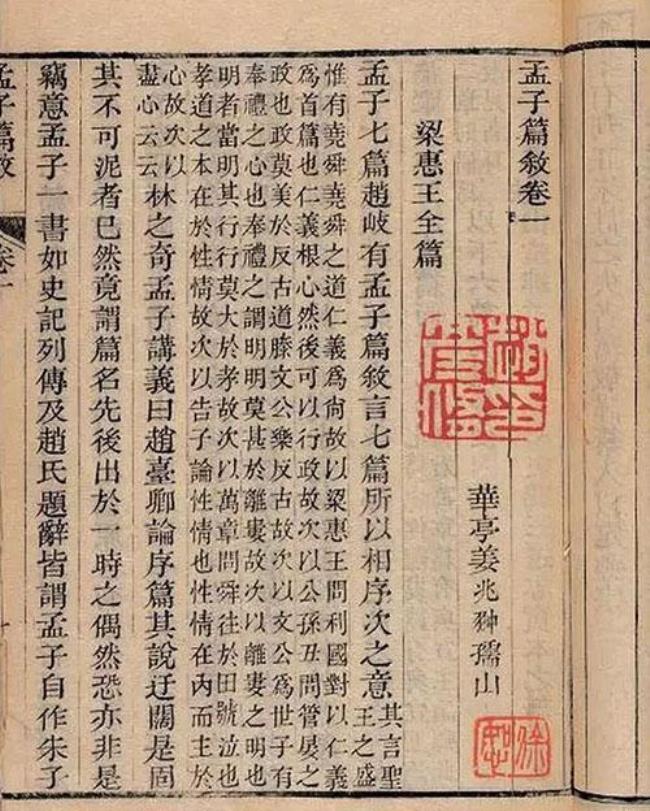 孟子篇敘卷一
華亭姜兆翀孺山
梁惠王全篇
孟子七篇趙岐有孟子篇敘言七篇所以相序次之意其言聖
王之盛
惟有堯舜堯舜之道仁義爲尙故以梁惠王問利國對以仁義
爲首篇也仁義根心然後可以行政故次以公孫丑問管晏之
政也政莫美於反古道滕文公樂反古故次以文公爲世子有
奉禮之心也奉禮之謂明明莫甚於離婁故次以離婁之明也
明者當明其行行莫大於孝故次以萬章問舜往於田號泣也
孝道之本在於性情故次以告子論性情也性情在內而主於
心故次以
盡心云云林之奇孟子講義曰趙臺卿論序篇其說迂闊是固
其不可泥者已然竟謂篇名先後出於一時之偶然恐亦非是
竊意孟子一書如史記列傳及趙氏題辭皆謂孟子自作朱子
孟子篇敘 卷一